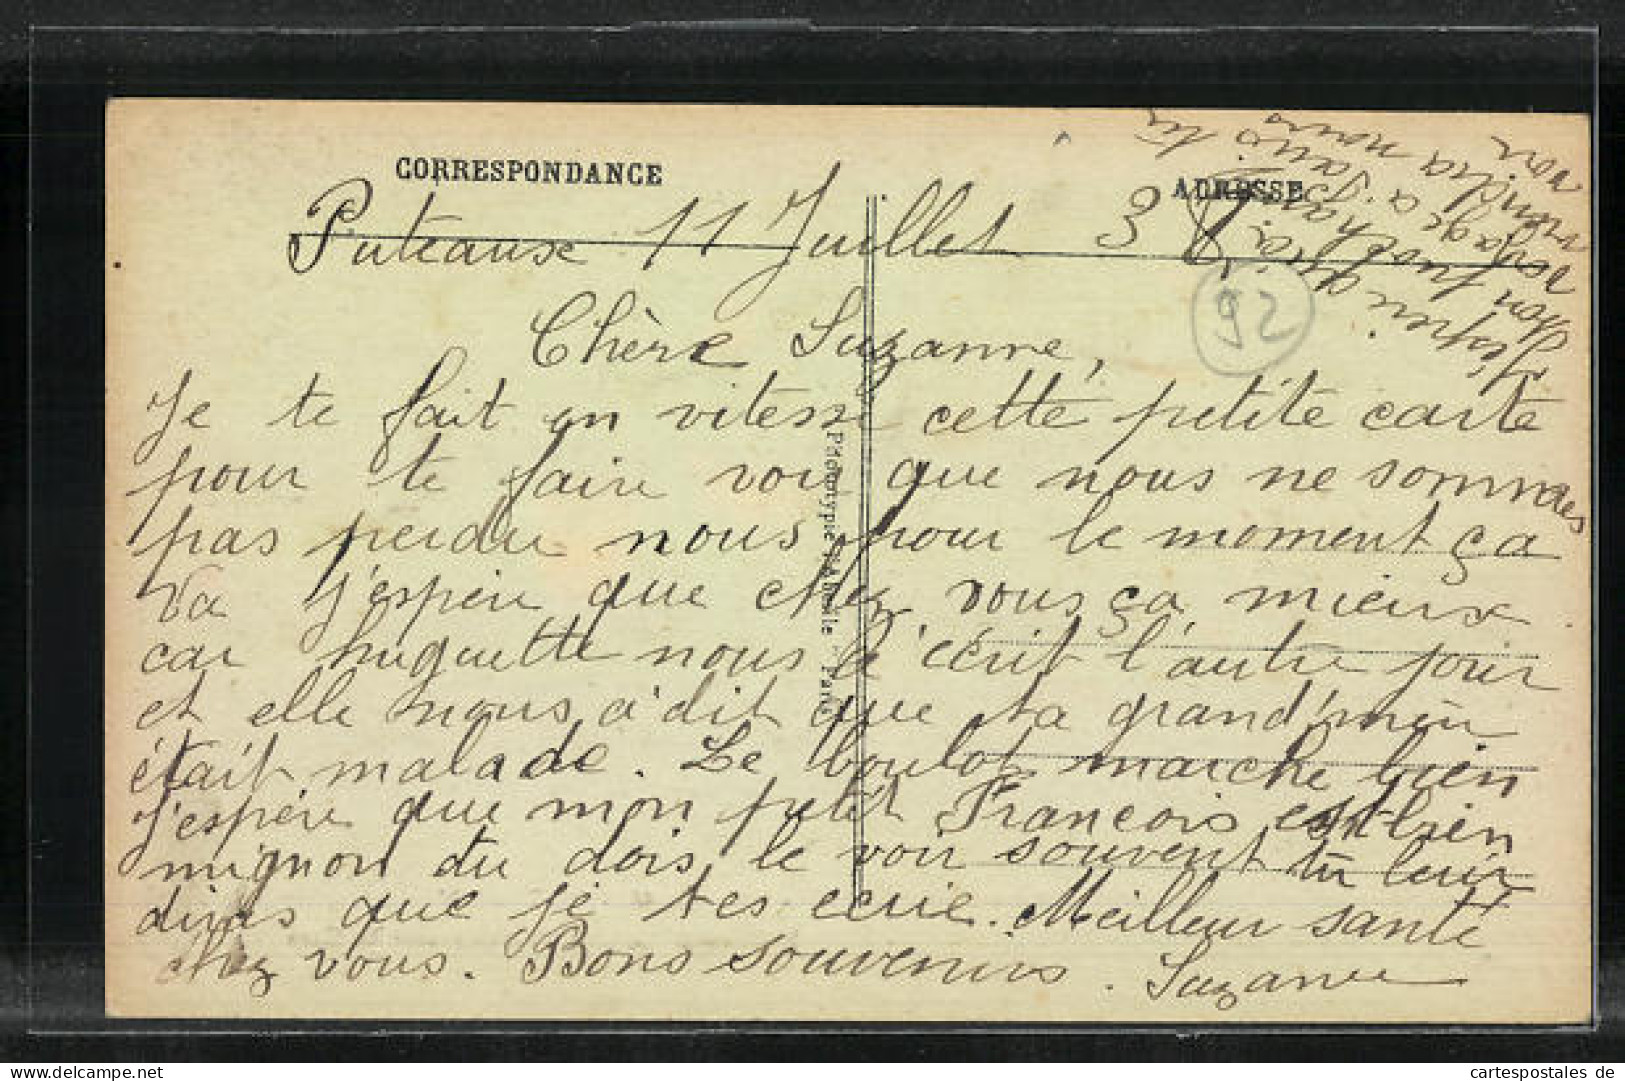 CORRESPONDANCE
ADRESSE
Puteaux 11 Juillet 38
92
Chère Suzanne,
Je te fait en vitesse cette petite carte
pour te faire voir que nous ne sommes
pas perdu nous pour le moment ça
va j'espère que chez vous ça mieux
car huguette nous a écrit l'autre jour
et elle nous a dit que ta grand'mère
était malade. Le boulot marche bien
j'espère que mon petit François est bien
mignon tu dois le voir souvent tu leur
diras que je tes ecrie. Meilleur santé
chez vous. Bons souvenirs. Suzanne
viendra nous
voir
Phototypie Paris
www.cartespostales.de